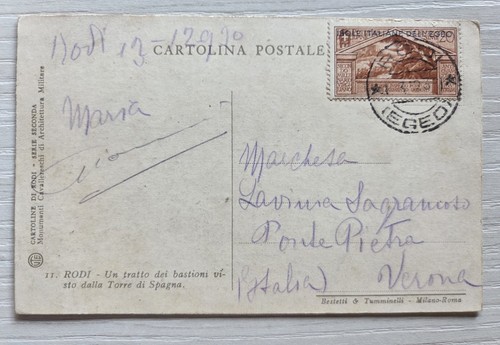 Rodi 13-12930
CARTOLINA POSTALE
ISOLE ITALIANE DELL'EGEO
(EGEO)
Maria
CARTOLINE DI RODI - SERIE SECONDA
Monumenti Cavallereschi di Architettura Militare
Marchesa
Lavinia Sagramoso
Ponte Pietra
(Italia) Verona
11. RODI - Un tratto dei bastioni vi-
sto dalla Torre di Spagna.
Bestetti & Tumminelli - Milano-Roma